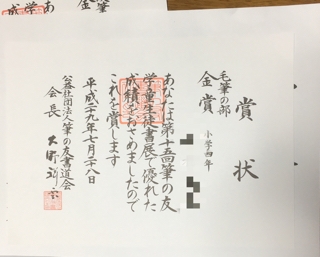 賞状
毛筆の部
金賞
小学四年
あなたは第十五回筆の友
学童生徒書展で優れた
成績をおさめましたので
これを賞します
平成二十九年七月二十八日
公益社団法人筆の友書道会
会長